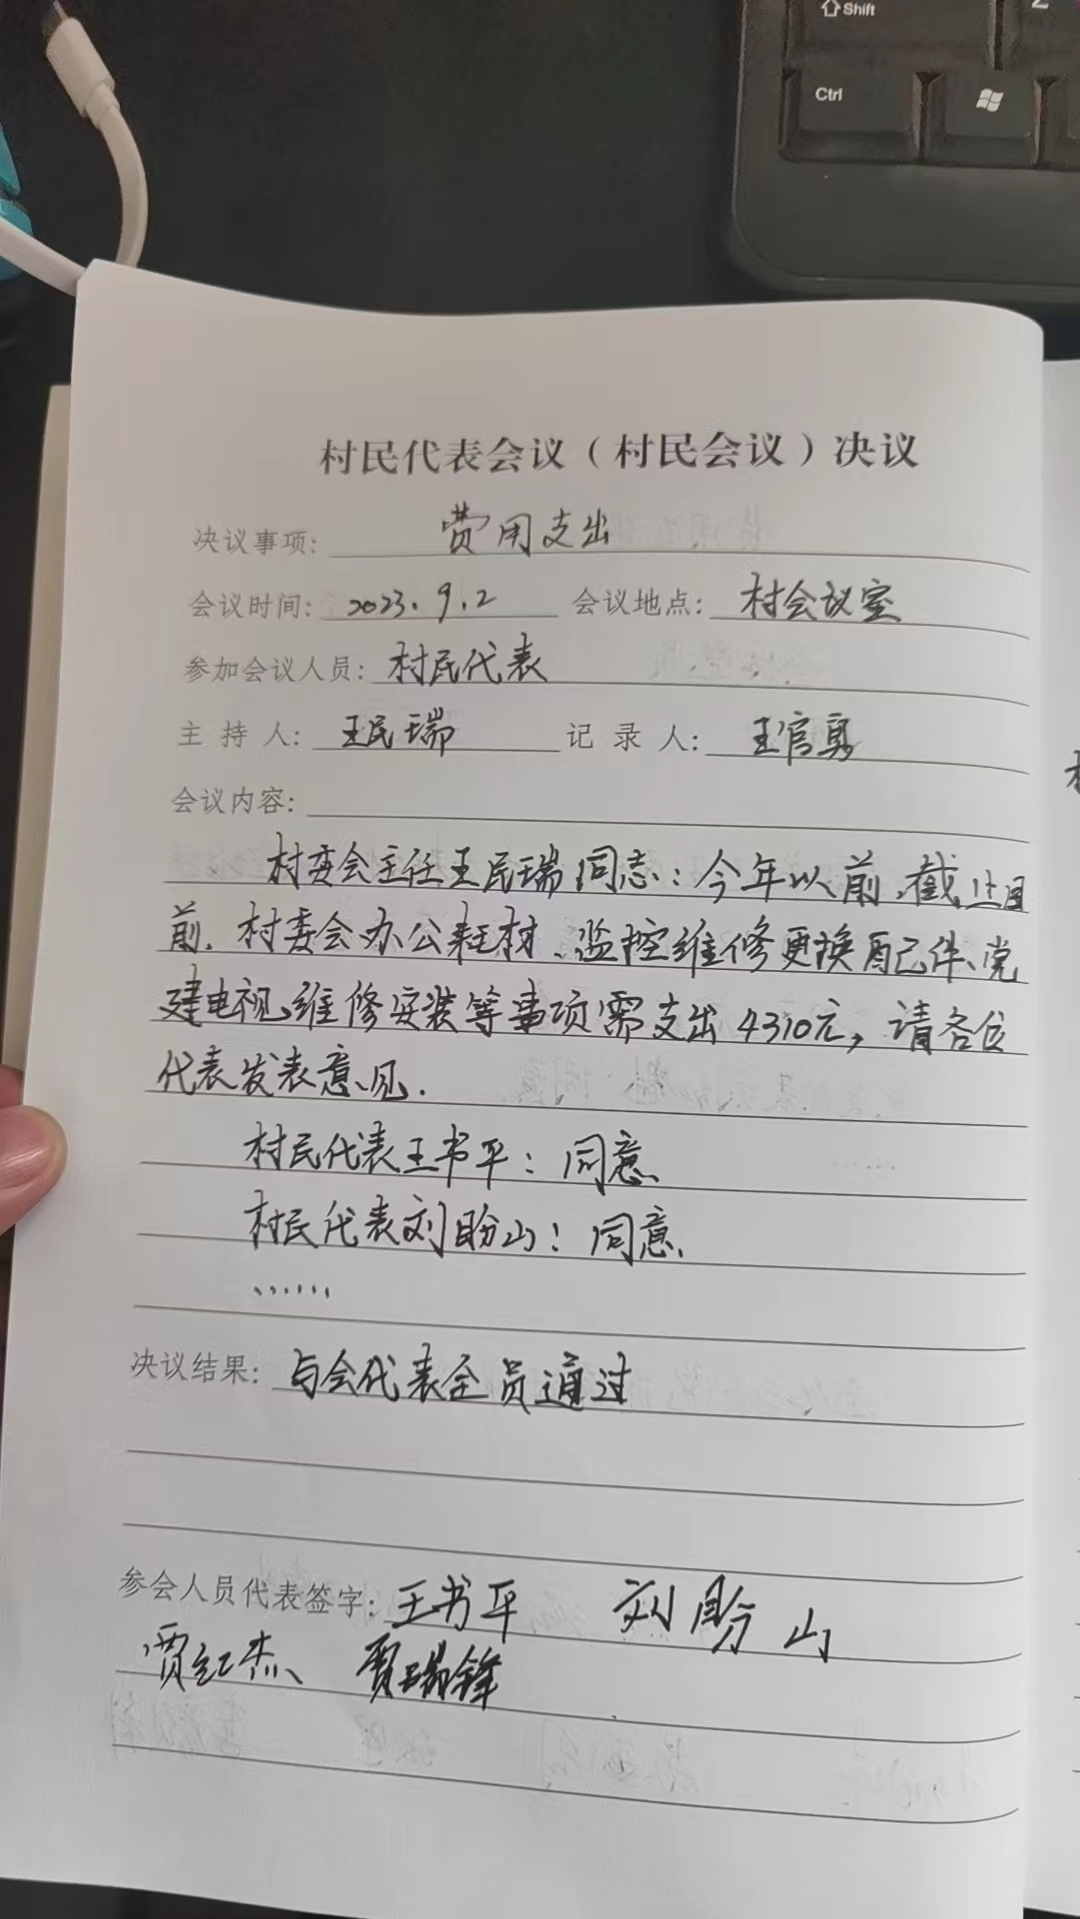 Shift
Ctrl
村民代表会议（村民会议）决议
决议事项: 费用支出
会议时间: 2023.9.2 会议地点: 村会议室
参加会议人员: 村民代表
主 持 人: 王民瑞 记 录 人: 王官勇
会议内容:
村委会主任王民瑞同志：今年以前,截止目
前.村委会办公耗材、监控维修更换配件、党
建电视维修安装等事项需支出4310元,请各位
代表发表意见.
村民代表王书平：同意
村民代表刘盼山：同意
......
决议结果: 与会代表全员通过
参会人员代表签字: 王书平 刘盼山
贾红杰、贾瑞锋